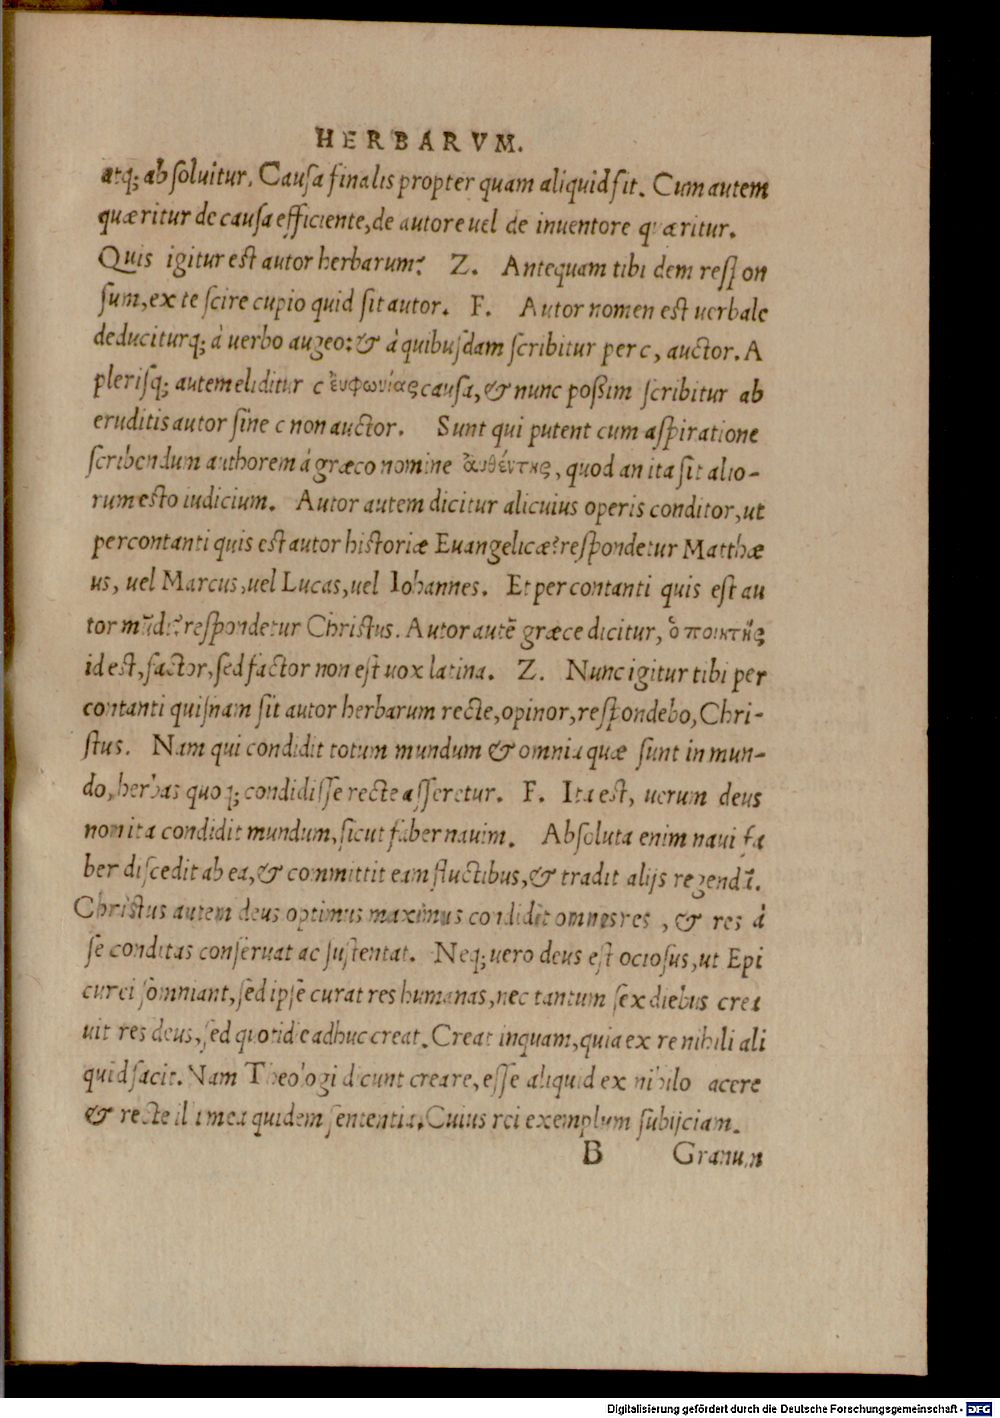 HERBARVM.
atq; absoluitur. Causa finalis propter quam aliquid sit. Cum autem
quæritur de causa efficiente, de autore uel de inuentore quæritur.
Quis igitur est autor herbarum? Z. Antequam tibi dem respon
sum, ex te scire cupio quid sit autor. F. Autor nomen est uerbale
deduciturq; à uerbo augeo: & à quibusdam scribitur per c, auctor. A
plerisq; autem eliditur c ἐυφωνίας causa, & nunc poßim scribitur ab
eruditis autor sine c non auctor. Sunt qui putent cum aspiratione
scribendum authorem á græco nomine ἀυθέντης, quod an ita sit alio-
rum esto iudicium. Autor autem dicitur alicuius operis conditor, ut
percontanti quis est autor historiæ Euangelicæ? respondetur Matthæ
us, uel Marcus, uel Lucas, uel Iohannes. Et percontanti quis est au
tor mũdi? respondetur Christus. Autor autẽ græce dicitur, ὁ ποιητὴς
id est, factor, sed factor non est uox latina. Z. Nunc igitur tibi per
contanti quisnam sit autor herbarum recte, opinor, respondebo, Chri-
stus. Nam qui condidit totum mundum & omnia quæ sunt in mun-
do, herbas quoq; condidisse recte asseretur. F. Ita est, uerum deus
non ita condidit mundum, sicut faber nauim. Absoluta enim naui fa
ber discedit ab ea, & committit eam fluctibus, & tradit alijs regendã.
Christus autem deus optimus maximus condidit omnes res, & res à
se conditas conseruat ac sustentat. Neq; uero deus est ociosus, ut Epi
curei somniant, sed ipse curat res humanas, nec tantum sex diebus crea
uit res deus, sed quotidie adhuc creat. Creat inquam, quia ex re nihili ali
quid facit. Nam Theologi dicunt creare, esse aliquid ex nihilo acere
& recte illi mea quidem sententia. Cuius rei exemplum subijciam.
B Granum
Digitalisierung gefördert durch die Deutsche Forschungsgemeinschaft - DFG